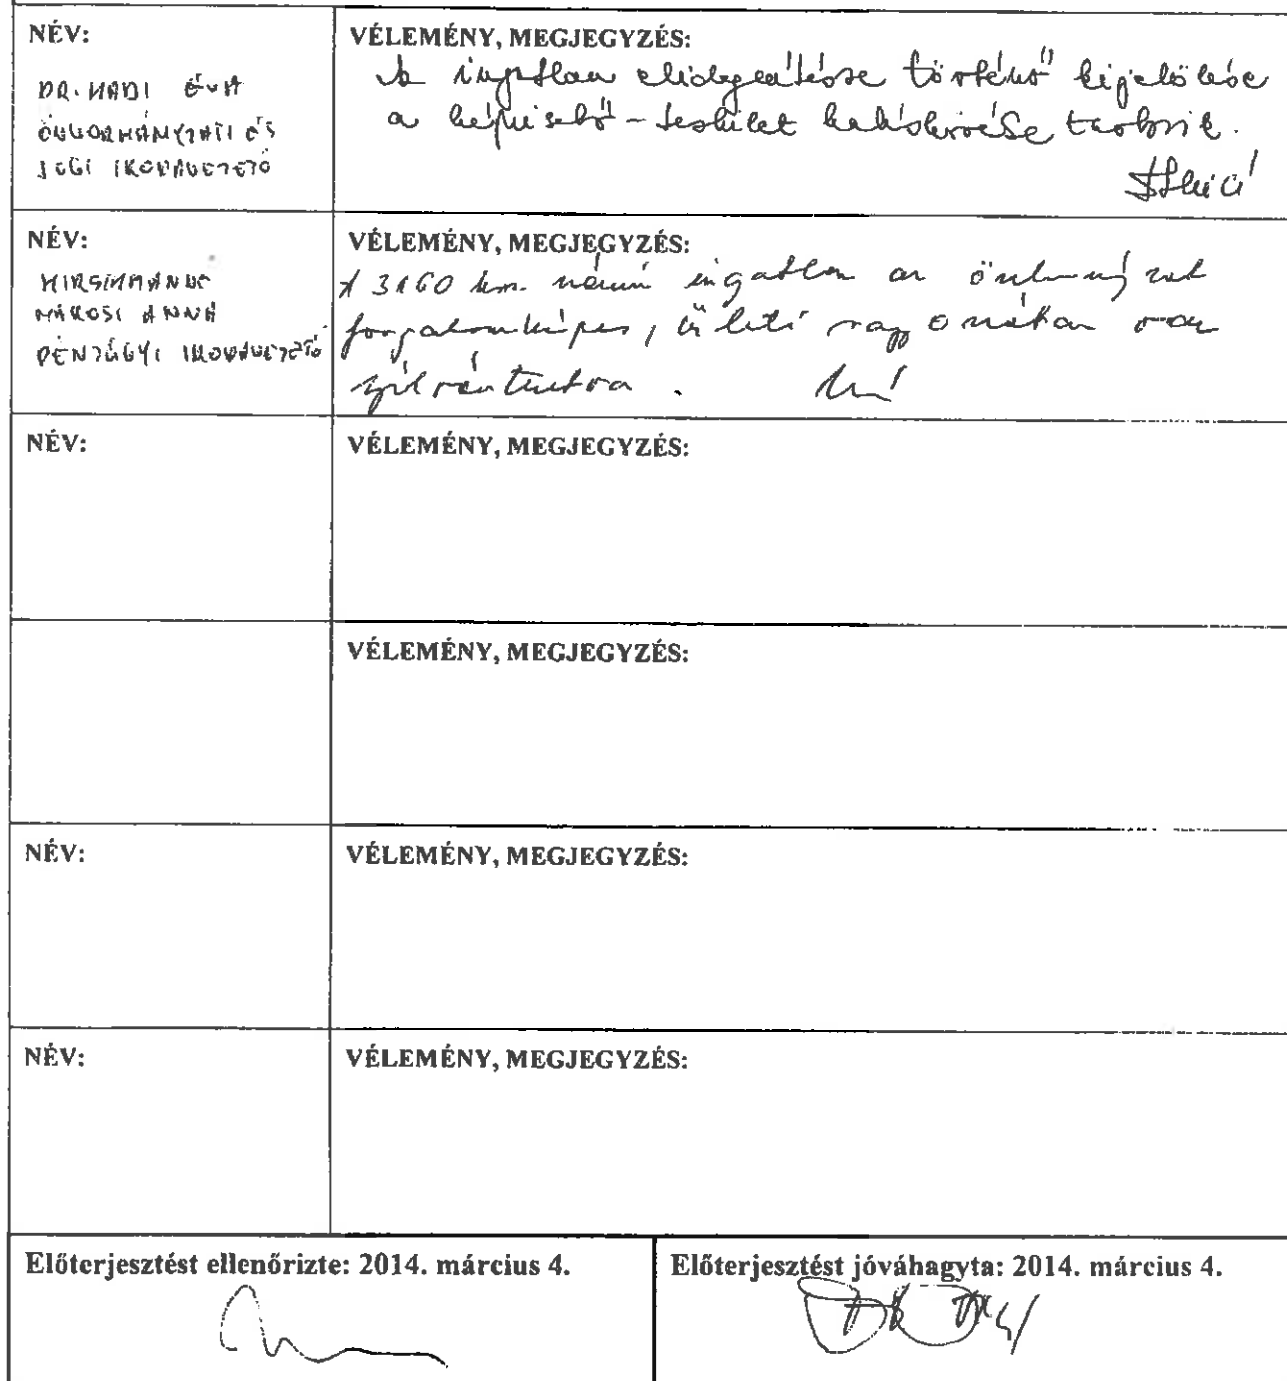 NÉV:
DR. HADI ÉVA
ÖNKORMÁNYZATI ÉS
JOGI IRODAVEZETŐ
VÉLEMÉNY, MEGJEGYZÉS:
Az ingatlan elidegenítésre történő kijelölése
a képviselő-testület hatásköre tartozik.
NÉV:
HIRSCHMANNÉ
ANNA
PÉNZÜGYI IRODAVEZETŐ
VÉLEMÉNY, MEGJEGYZÉS:
A 3160 hrsz. számú ingatlan az önkormányzat
forgalomképes, üzleti vagyonában van
nyilvántartva.
NÉV:
VÉLEMÉNY, MEGJEGYZÉS:
VÉLEMÉNY, MEGJEGYZÉS:
NÉV:
VÉLEMÉNY, MEGJEGYZÉS:
NÉV:
VÉLEMÉNY, MEGJEGYZÉS:
Előterjesztést ellenőrizte: 2014. március 4.
Előterjesztést jóváhagyta: 2014. március 4.